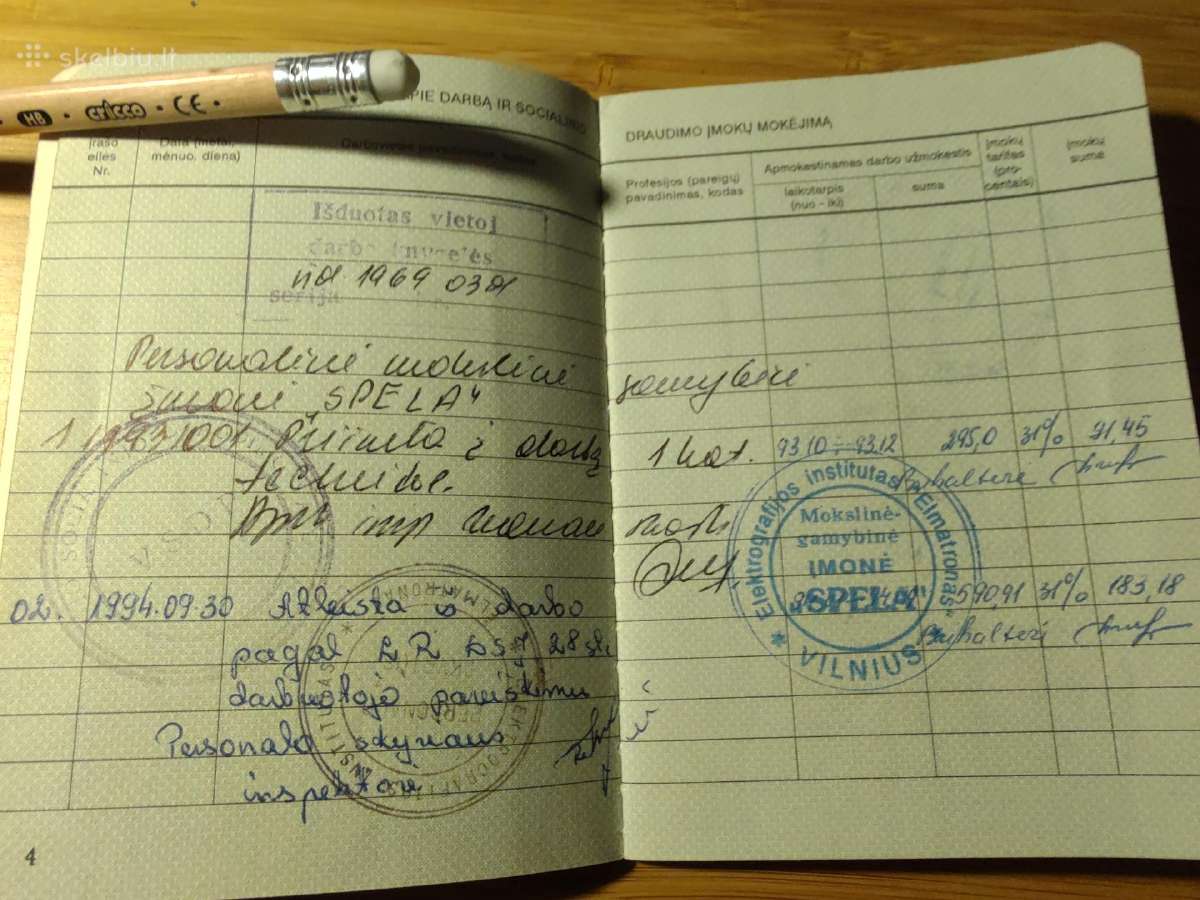 skelbiu.lt
HB • CRICCO • CE •
PIE DARBĄ IR SOCIALINIO
DRAUDIMO ĮMOKŲ MOKĖJIMĄ
Įrašo eilės Nr.
Data (metai, mėnuo, diena)
Profesijos (pareigų) pavadinimas, kodas
Apmokestinamas darbo užmokestis
laikotarpis (nuo - iki)
suma
Įmokų tarifas (procentais)
Įmokų suma
Išduotas vietoj
darbo knygelės
serija
nd 1969
Personalinė mokslinė gamybinė
įmonė „SPELA“
1 Priimta į darbą 1 kat. 93.10 ÷ 93.12 295,0 31% 91,45
technike. Buhalterė
02. 1994.09.30 Atleista iš darbo 590,91 31% 183,18
pagal LR DSĮ 28 str. Buhalterė
darbuotojo pareiškimu
Personalo skyriaus
inspektorė
Elektrografijos institutas "Elmatronas"
Mokslinė-
gamybinė
ĮMONĖ
"SPELA"
* VILNIUS *
4